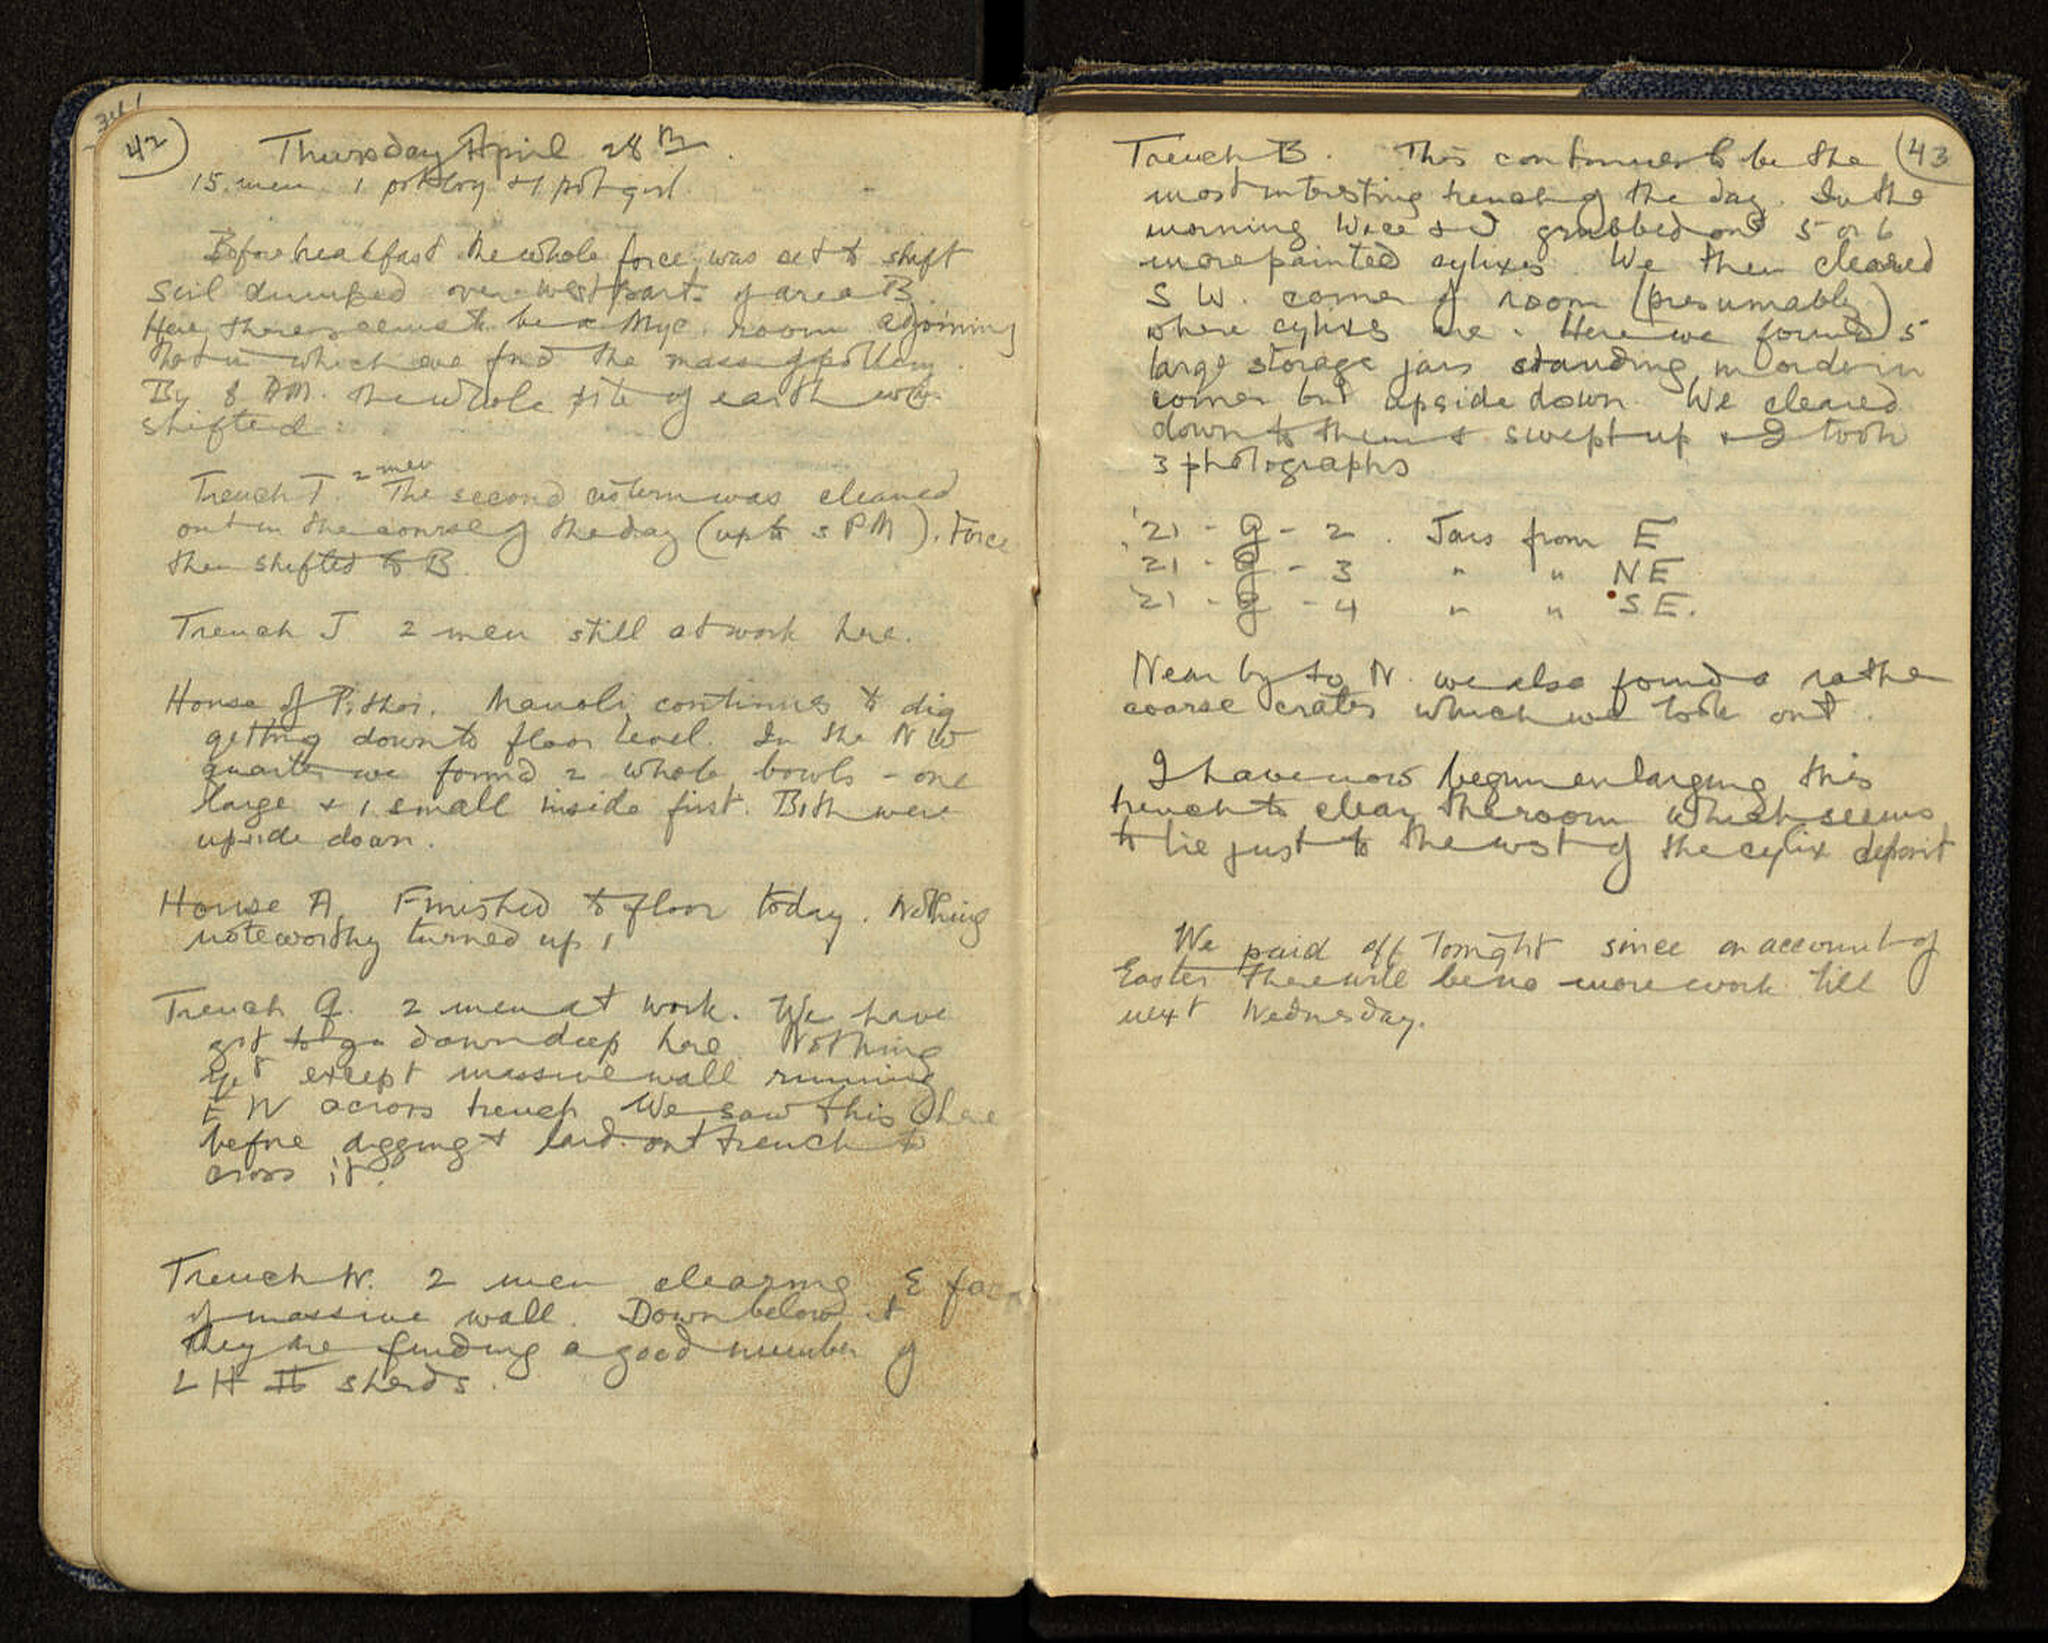 42
Thursday April 28th.
15 men 1 potboy & 1 potgirl.
Before breakfast the whole force was set to shift
soil dumped over west part of area B.
Here there seems to be a Myc. room adjoining
that in which we find the mass of pottery.
By 8 AM. the whole of earth was
shifted.
Trench T. 2 men The second cistern was cleaned
out in the course of the day (up to 5 PM). Force
then shifted to B.
Trench J 2 men still at work here.
House of Pithoi. Manoli continues to dig
getting down to floor level. In the NW
quarter we found 2 whole bowls - one
large & 1 small inside first. Both were
upside down.
House A. Finished to floor today. Nothing
noteworthy turned up.
Trench Q. 2 men at work. We have
got to go down deep here. Nothing
yet except massive wall running
E W across trench. We saw this here
before digging & laid out trench to
cross it.
Trench W. 2 men clearing E face
of massive wall. Down below it
they are finding a good number of
LH II sherds.
43
Trench B. This continues to be the
most interesting trench of the day. In the
morning Wace & I grubbed out 5 or 6
more painted cylixes. We then cleared
S W. corner of room (presumably)
where cylixes are. Here we found 5
large storage jars standing in order in
corner but upside down. We cleared
down to them & swept up & I took
3 photographs
'21 - g - 2. Jars from E
'21 - g - 3 " " NE
'21 - g - 4 " " SE.
Near by to N. we also found a rather
coarse crater which we took out.
I have now begun enlarging this
trench to clear the room which seems
to lie just to the west of the cylix deposit
We paid off tonight since on account of
Easter there will be no more work till
next Wednesday.